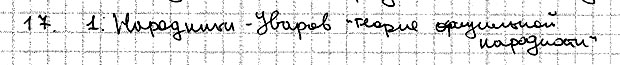 17. 1. Народники - Уваров - теория официальной
народности"